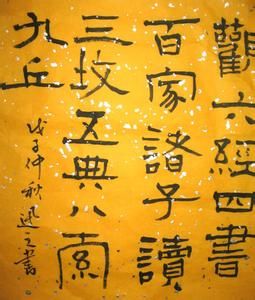 觀六經四書
百家諸子讀
三坟五典八索
九丘
戊子仲秋 迅之書